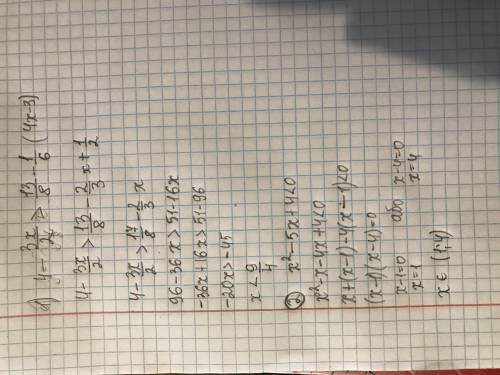 б) 4 - 3x/2 > 13/8 - 1/6 (4x-3)
4 - 3x/2 > 13/8 - 2/3 x + 1/2
4 - 3x/2 > 17/8 - 2/3 x
96 - 36x > 51 - 16x
-36x + 16x > 51 - 96
-20x > -45
x < 9/4
② x² - 5x + 4 < 0
x² - x - 4x + 4 < 0
x + (x-1) - 4(x-1) < 0
(x-1)(x-4) = 0
x-1=0 або x-4=0
x=1 x=4
x ∈ (1; 4)